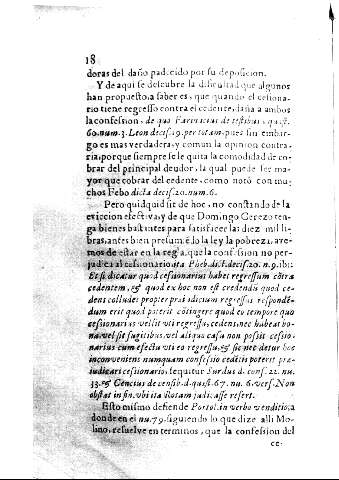 18
doras del daño padecido por su deposicion.
Y de aqui se descubre la dificultad que algunos
han propuesto, a saber es, que quando el cesiona-
rio tiene regresso contra el cedente, daña a ambos
la confession, de qua Farinacius de testibus, quæst.
60. num. 3. Leon decis. 19. per totam, pues sin embar-
go es mas verdadera, y comun la opinion contra-
ria, porque siempre se le quita la comodidad de co-
brar del principal deudor, la qual puede ser ma-
yor que cobrar del cedente, como notò con mu-
chos Febo dicta decis. 20. num. 6.
Pero quidquid sit de hoc, no constando de la
eviccion efectiva, y de que Domingo Cerezo ten-
ga bienes bastantes para satisfacer las diez mil li-
bras, antes bien presumiẽdo la ley la pobreza, ave-
mos de estar en la regla, que la confession no per-
judica al cessionario, ita Pheb. di. t. decis. 20. n. 9. ibi:
Et si dicatur quod cessionarius habet regressum contra
cedentem, & quod ex hoc non est credendũ quod ce-
dens colludes propter præiudicium regressus respondẽ-
dum erit quod poterit cõtingere quod eo tempore quo
cessionarius vellit vti regressu, cedens nec habeat bo-
na, vel sit fugitibus, vel aliquo casu non possit cessio-
narius cum efectu vti eo regressu, & sic ne detur hoc
inconveniens nunquam confessio cedẽtis poterit præ-
iudicari cessionario, sequitur Surdus d. cons. 22. nu.
33. & Gencius de censib. d. quæst. 67. nu. 6. vers. Non
obstat in fin. vbi ita Rotam judicasse refert.
Esto mismo defiende Portol. in verbo venditio, a
donde en el nu. 79. siguiendo lo que dize alli Mo-
lino, resuelve en terminos, que la confession del
ce-